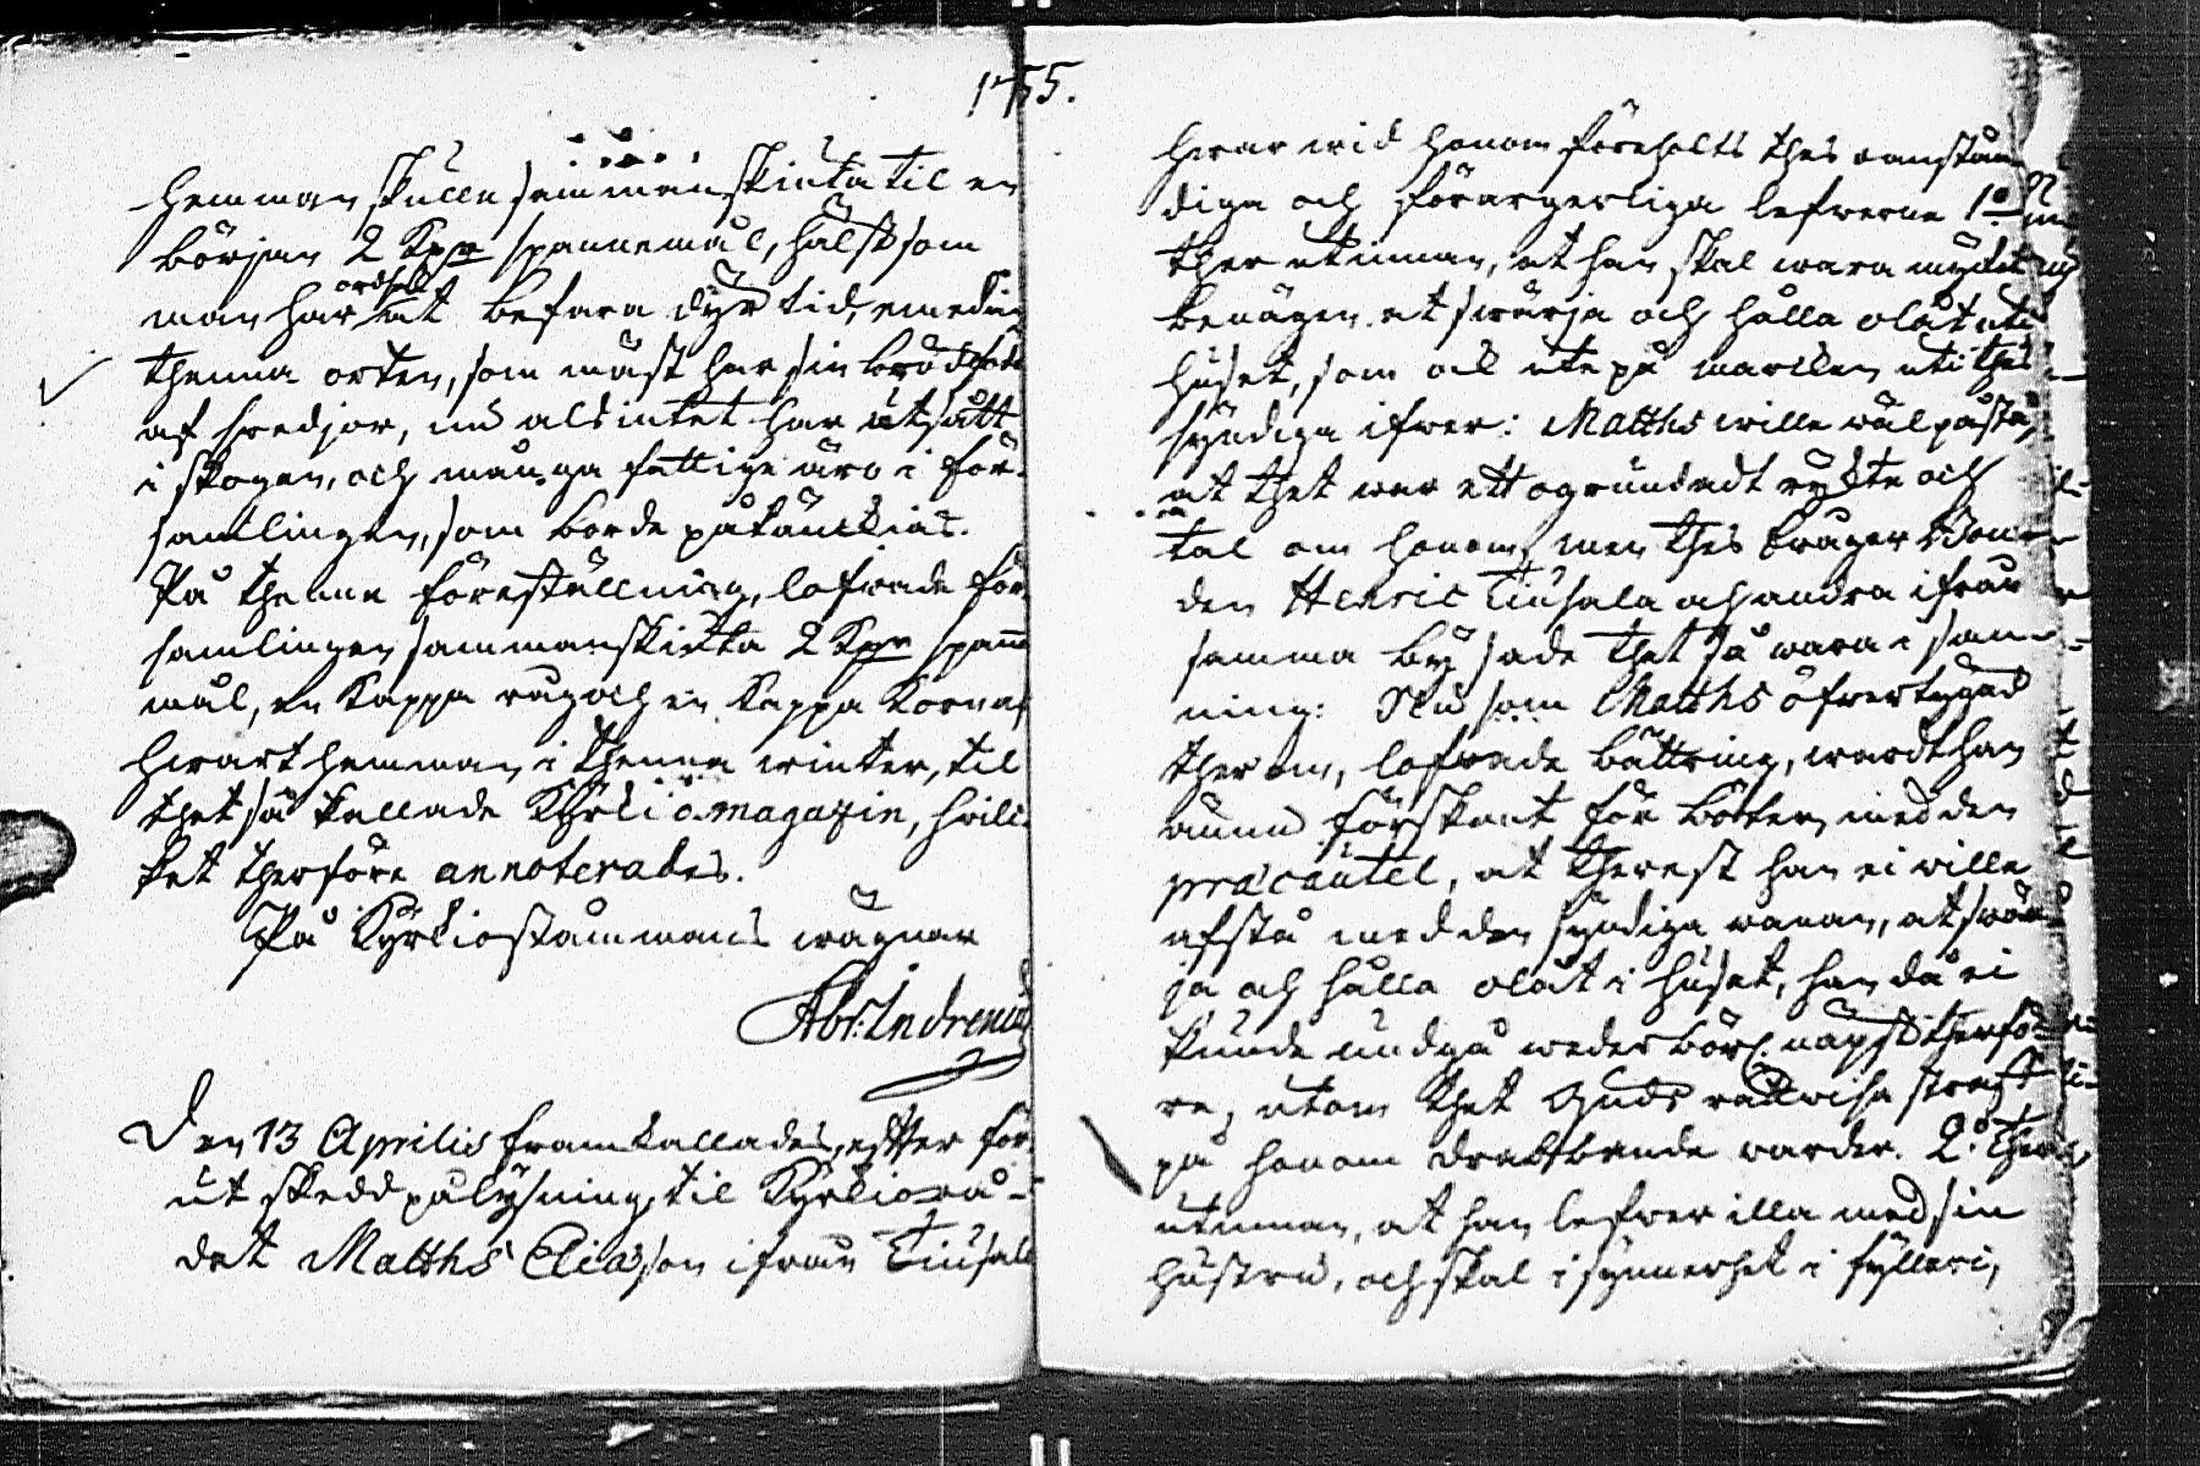 1755.
hemman skulle sammanskiuta til en
början 2 Kpr spannemål, hälst som
man har orsak at befara dyr tid, emedan
thenna orten, som mäst har sin brödföda
af swedjor, nu alsintet har utsått
i skogen, och många fattige äro i för-
samlingen, som borde påtänckias.
På thenna föreställning, lofwade för-
samlingen sammanskiuta 2 Kpr spann-
mål, en Kappa rug och en Kappa Korn af
hwart hemman i thenna winter, til
thet så kallade Kyrkiomagazin, hwil-
ket therföre annoterades.
På Kyrkiostämmans wägnar
Abr: Indrenius
Den 13 Aprilis framkallades, effter för-
ut skedd pålysning, til Kyrkiorå-
det Matths Eliasson ifrån Tiusala
hwar wid honom föreholts thes oanstän-
diga och förargerliga lefwerne 1o
ther utinnan, at han skal wara mycket
benägen at swärja och hålla olåt uti
huset, som ock ute på marcken uti thes
syndiga ifwer: Matths wille wäl påstå,
at thet war ett ogrundadt rychte och
tal om honom, men thes Swåger
den Henric Tiusala och andra ifrån
samma by sade thet så wara i san-
ning: Nu som Matths öfwertygad
therom, lofwade bättring, wardt han
ännu förskont för böter, med den
præcautel, at therest han ei wille
afstå med den syndiga wanan, at swär-
ja och hålla olåt i huset, han då ei
kunde undgå wederbörl. näpst therfö-
re, utom thet Guds rättwisa straff
på honom drabbande warder. 2o Ther
utinnan, at han lefwer illa med sin
hustru, och skal i synnerhet i fylleri,